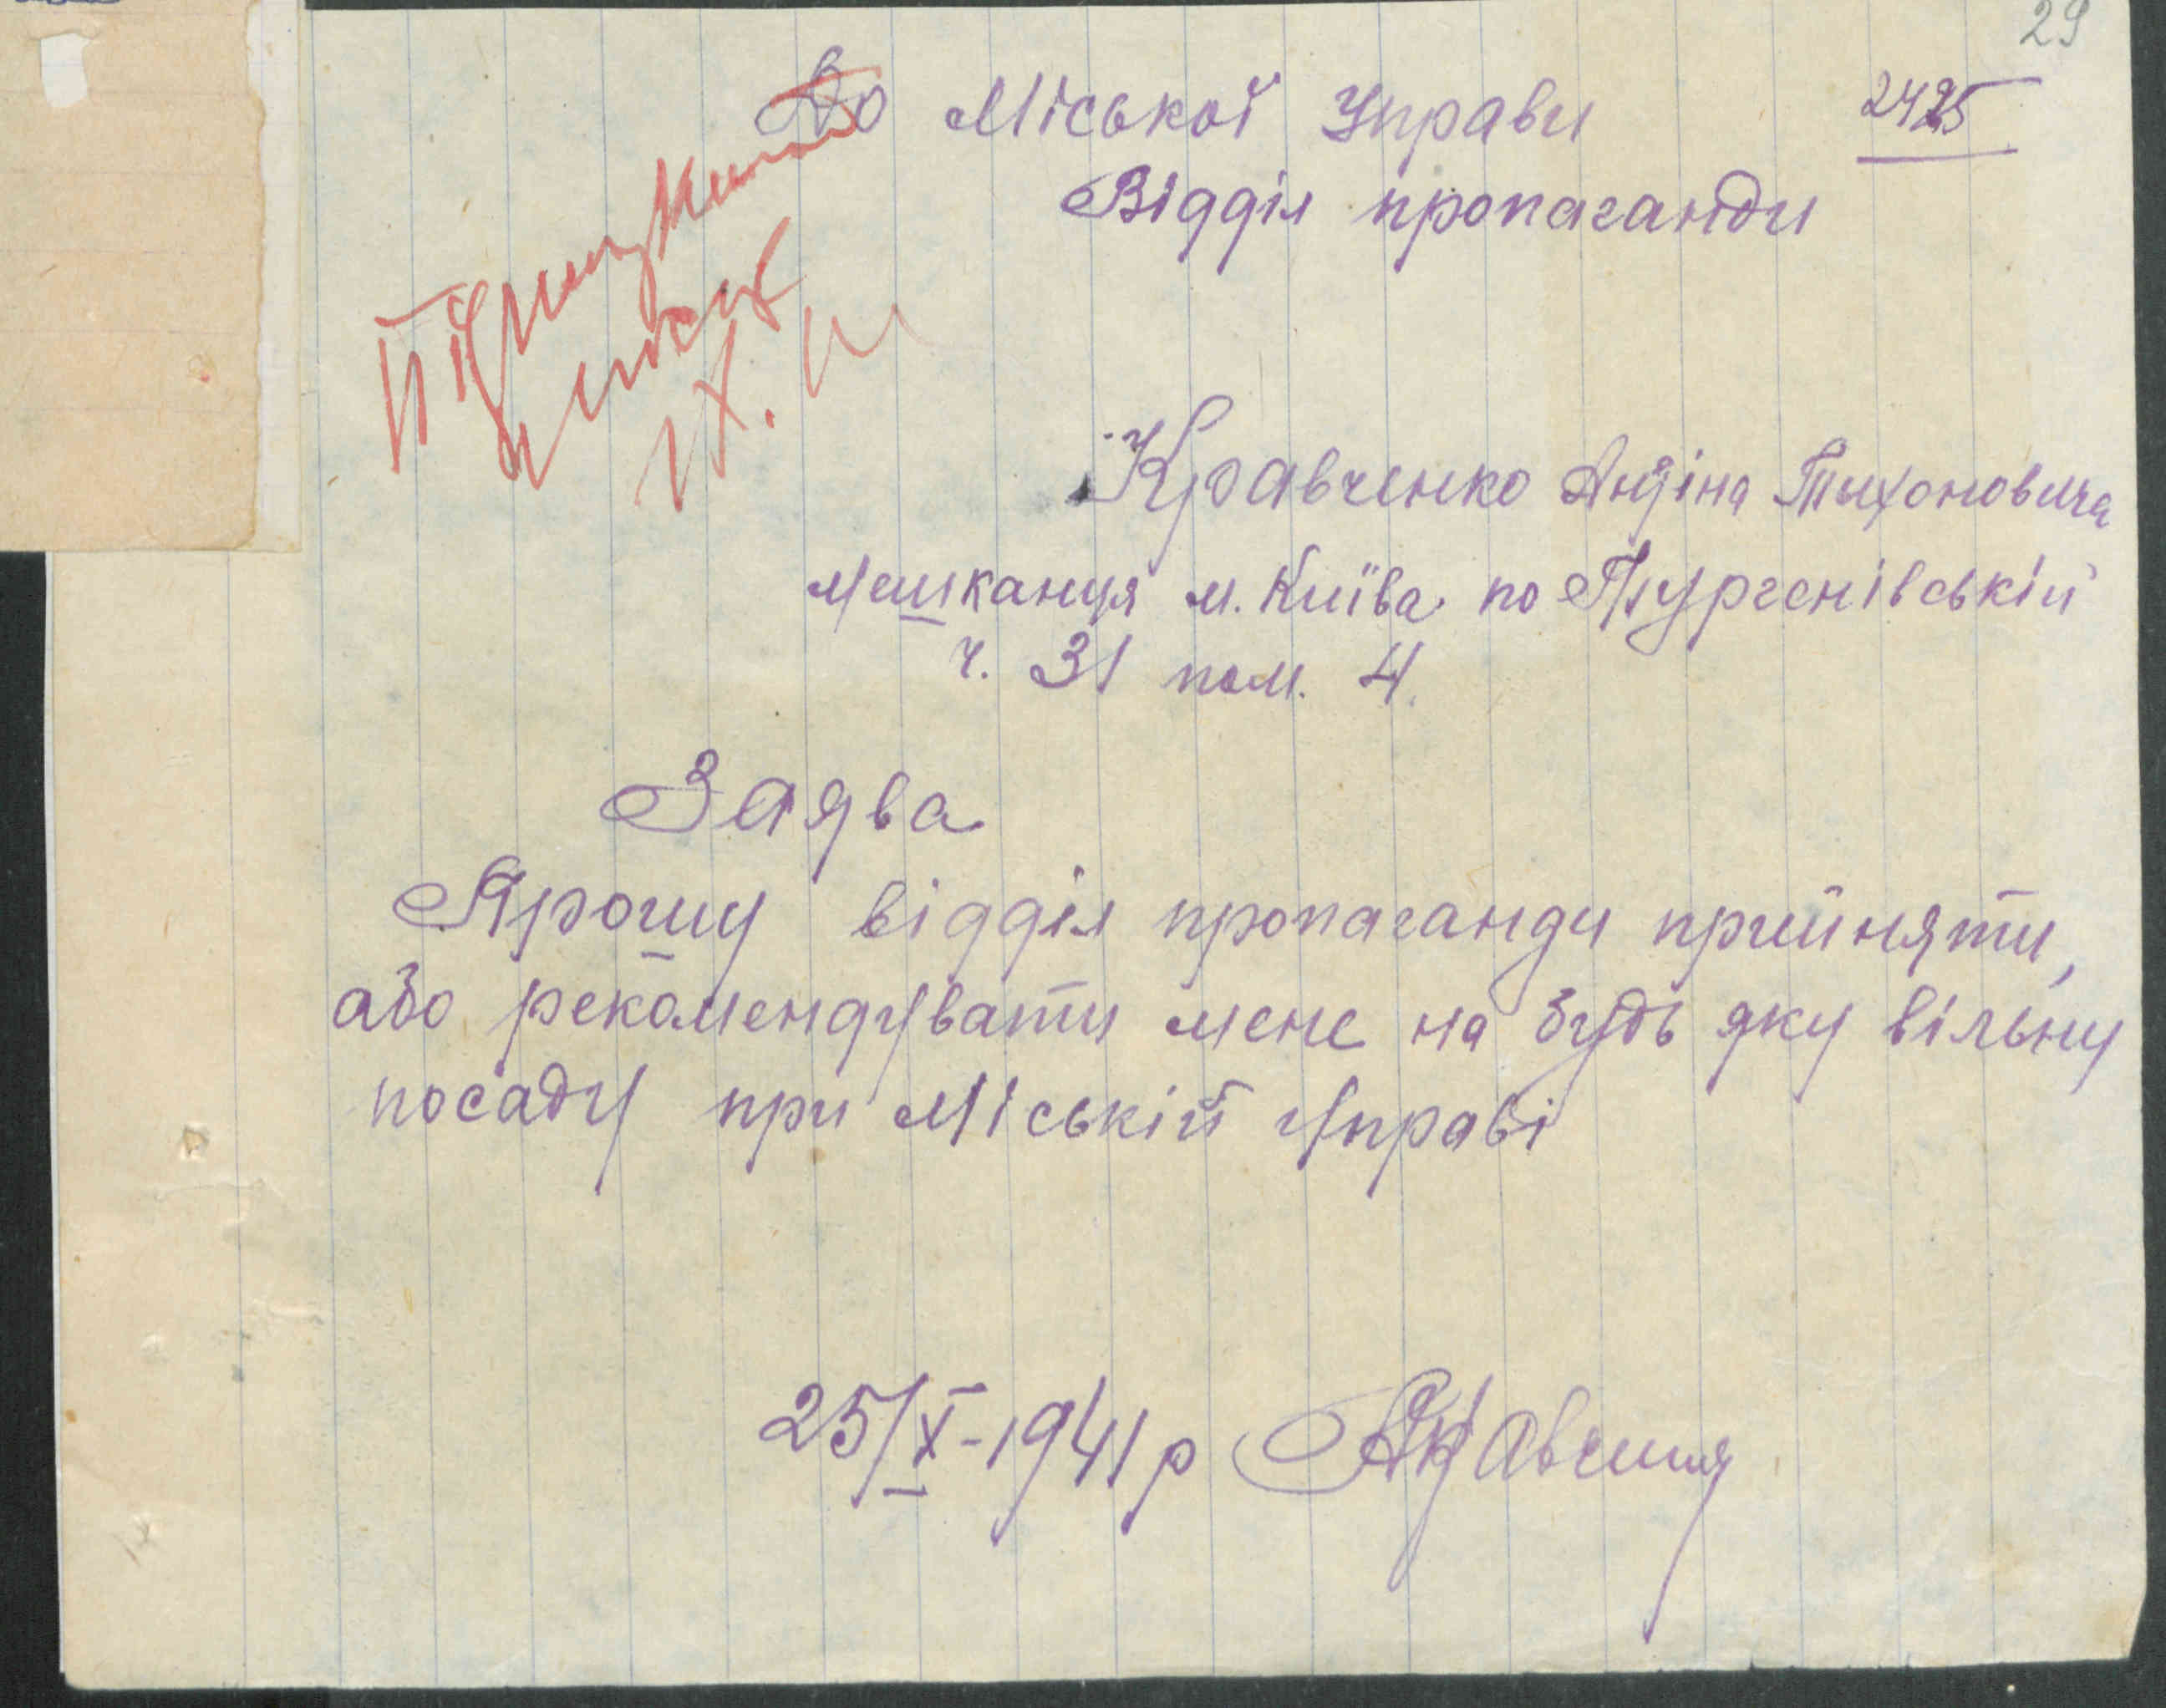 29
До Міської Управи
2425
Відділ пропаганди
Кравченко Тихоновича
мешканця м. Київа по Тургенівській
ч. 31 пом. 4.
Заява
Прошу відділ пропаганди прийняти,
або рекомендувати мене на будь яку вільну
посаду при Міській Управі
25/X-1941 р